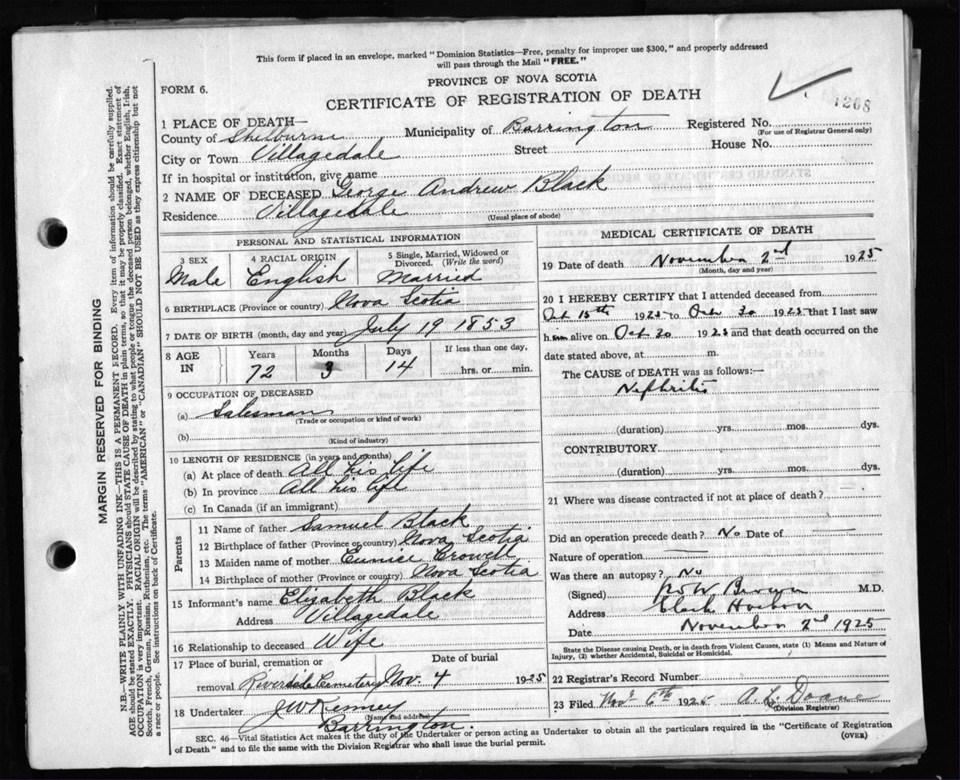 This form if placed in an envelope, marked "Dominion Statistics—Free, penalty for improper use $300," and properly addressed
will pass through the Mail "FREE."
PROVINCE OF NOVA SCOTIA
FORM 6.
CERTIFICATE OF REGISTRATION OF DEATH
1268
1 PLACE OF DEATH—
County of Shelburne Municipality of Barrington Registered No.
(For use of Registrar General only)
City or Town Villagedale Street House No.
If in hospital or institution, give name
2 NAME OF DECEASED George Andrew Black
Residence Villagedale
(Usual place of abode)
PERSONAL AND STATISTICAL INFORMATION
3 SEX Male
4 RACIAL ORIGIN English
5 Single, Married, Widowed or Divorced. (Write the word) Married
6 BIRTHPLACE (Province or country) Nova Scotia
7 DATE OF BIRTH (month, day and year) July 19 1853
8 AGE IN Years 72 Months 3 Days 14 If less than one day, hrs. or min.
9 OCCUPATION OF DECEASED
(a) Salesman
(Trade or occupation or kind of work)
(b)
(Kind of industry)
10 LENGTH OF RESIDENCE (in years and months)
(a) At place of death All his life
(b) In province All his life
(c) In Canada (if an immigrant)
Parents
11 Name of father Samuel Black
12 Birthplace of father (Province or country) Nova Scotia
13 Maiden name of mother Eunice Crowell
14 Birthplace of mother (Province or country) Nova Scotia
15 Informant's name Elizabeth Black
Address Villagedale
16 Relationship to deceased Wife
17 Place of burial, cremation or removal Riverside Cemetery
Date of burial Nov. 4 1925
18 Undertaker J W Kenney
(Name and address)
Barrington.
MEDICAL CERTIFICATE OF DEATH
19 Date of death November 2nd 1925
(Month, day and year)
20 I HEREBY CERTIFY that I attended deceased from
Oct 15th 1925 to Oct 30 1925 that I last saw
him alive on Oct 30 1925 and that death occurred on the
date stated above, at m.
The CAUSE of DEATH was as follows:—
Nephritis
(duration) yrs. mos. dys.
CONTRIBUTORY
(duration) yrs. mos. dys.
21 Where was disease contracted if not at place of death?
Did an operation precede death? No Date of
Nature of operation
Was there an autopsy? No
(Signed) Brown M.D.
Address Clark Harbor
Date November 2nd 1925
State the Disease causing Death, or in death from Violent Causes, state (1) Means and Nature of
Injury, (2) whether Accidental, Suicidal or Homicidal.
22 Registrar's Record Number
23 Filed Nov 6th 1925 A. L. Doane
(Division Registrar)
SEC. 46—Vital Statistics Act makes it the duty of the Undertaker or person acting as Undertaker to obtain all the particulars required in the "Certificate of Registration
of Death" and to file the same with the Division Registrar who shall issue the burial permit. (OVER)
MARGIN RESERVED FOR BINDING
N.B.—WRITE PLAINLY WITH UNFADING INK—THIS IS A PERMANENT RECORD. Every item of information should be carefully supplied.
AGE should be stated EXACTLY. PHYSICIANS should STATE CAUSE OF DEATH in plain terms, so that it may be properly classified. Exact statement of
OCCUPATION is very important. RACIAL ORIGIN will be described by stating to what people or tongue the deceased person belonged, whether English, Irish,
Scotch, French, German, Russian, Ruthenian, etc. The terms "AMERICAN" or "CANADIAN" SHOULD NOT BE USED as they express citizenship but not
a race or people. See instructions on back of Certificate.